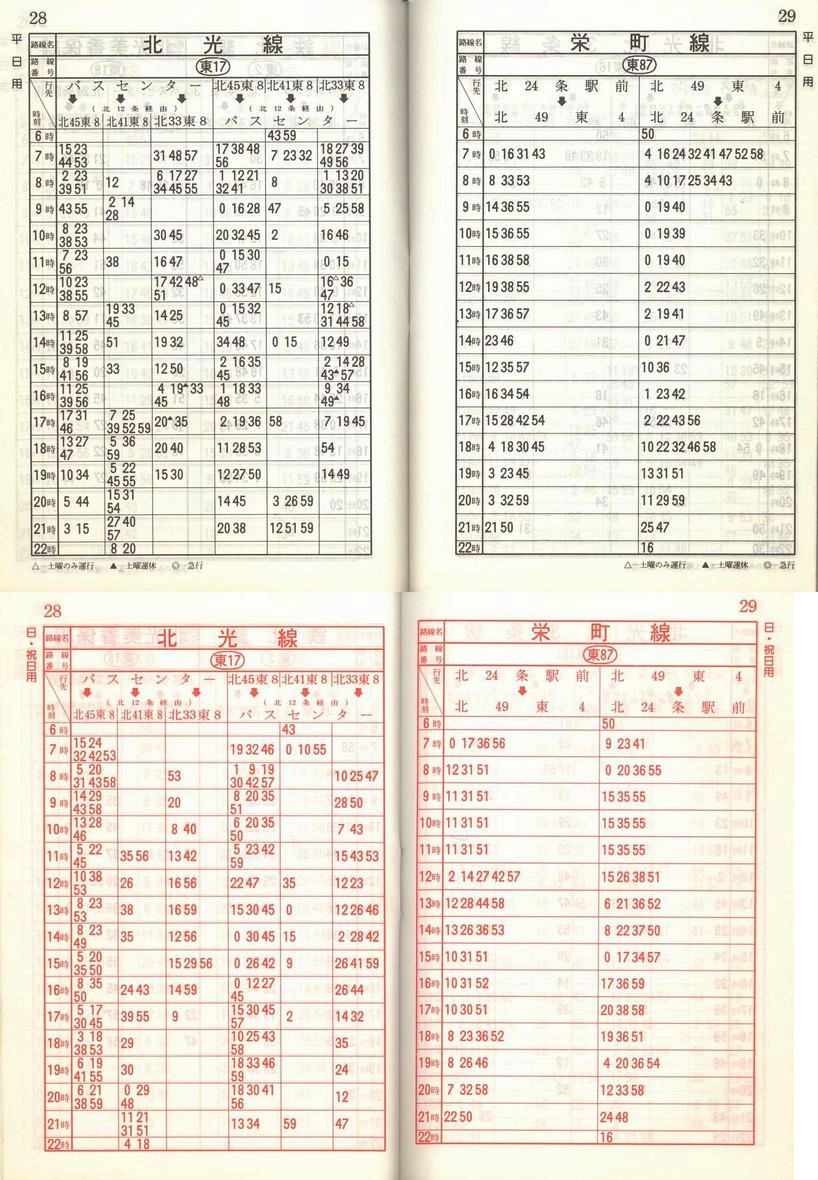 28
平日用
路線名 北光線
路線番号 東17
行先 バスセンター 北45東8 北41東8 北33東8
(北12条経由) (北12条経由)
時刻 北45東8 北41東8 北33東8 バスセンター
6時 43 59
7時 15 23 44 53 31 48 57 17 38 48 56 7 23 32 18 27 39 49 56
8時 2 23 39 51 12 6 17 27 34 45 55 1 12 21 32 41 8 1 13 20 30 38 51
9時 43 55 2 14 28 0 16 28 47 5 25 58
10時 8 23 38 53 30 45 20 32 45 2 16 46
11時 7 23 56 38 16 47 0 15 30 47 0 15
12時 10 23 38 55 17 42 48△ 51 0 33 47 15 16△ 36 47
13時 8 57 19 33 45 14 25 0 15 32 45 12 18△ 31 44 58
14時 11 25 39 58 51 19 32 34 48 0 15 12 49
15時 8 19 41 56 33 12 50 2 16 35 45 2 14 28 43▲ 57
16時 11 25 39 56 4 19▲ 33 45 1 18 33 48 9 34 49▲
17時 17 31 46 7 25 39 52 59 20▲ 35 2 19 36 58 7 19 45
18時 13 27 47 5 36 59 20 40 11 28 53 54
19時 10 34 5 22 45 55 15 30 12 27 50 14 49
20時 5 44 15 31 54 14 45 3 26 59
21時 3 15 27 40 57 20 38 12 51 59
22時 8 20
△…土曜のみ運行 ▲…土曜運休 ◎…急行
29
平日用
路線名 栄町線
路線番号 東87
行先 北24条駅前 北49東4
時刻 北49東4 北24条駅前
6時 50
7時 0 16 31 43 4 16 24 32 41 47 52 58
8時 8 33 53 4 10 17 25 34 43
9時 14 36 55 0 19 40
10時 15 36 55 0 19 39
11時 16 38 58 0 19 40
12時 19 38 55 2 22 43
13時 17 36 57 2 19 41
14時 23 46 0 21 47
15時 12 35 57 10 36
16時 16 34 54 1 23 42
17時 15 28 42 54 2 22 43 56
18時 4 18 30 45 10 22 32 46 58
19時 3 23 45 13 31 51
20時 3 32 59 11 29 59
21時 21 50 25 47
22時 16
△…土曜のみ運行 ▲…土曜運休 ◎…急行
28
日・祝日用
路線名 北光線
路線番号 東17
行先 バスセンター 北45東8 北41東8 北33東8
(北12条経由) (北12条経由)
時刻 北45東8 北41東8 北33東8 バスセンター
6時 43
7時 15 24 32 42 53 19 32 46 0 10 55
8時 5 20 31 43 58 53 1 9 19 30 42 57 10 25 47
9時 14 29 43 58 20 8 20 35 51 28 50
10時 13 28 46 8 40 6 20 35 50 7 43
11時 5 22 45 35 56 13 42 5 23 42 59 15 43 53
12時 10 38 53 26 16 56 22 47 35 12 23
13時 8 23 53 38 16 59 15 30 45 0 12 26 46
14時 8 23 49 35 12 56 0 30 45 15 2 28 42
15時 5 20 35 50 15 29 56 0 26 42 9 26 41 59
16時 8 35 50 24 43 14 59 0 12 27 45 26 44
17時 5 17 30 45 39 55 9 15 30 45 57 2 14 32
18時 3 18 38 53 29 10 25 43 58 35
19時 6 19 41 55 30 18 33 46 59 24
20時 6 21 38 59 0 29 48 18 30 41 56 12
21時 11 21 31 51 13 34 59 47
22時 4 18
29
日・祝日用
路線名 栄町線
路線番号 東87
行先 北24条駅前 北49東4
時刻 北49東4 北24条駅前
6時 50
7時 0 17 36 56 9 23 41
8時 12 31 51 0 20 36 55
9時 11 31 51 15 35 55
10時 11 31 51 15 35 55
11時 11 31 51 15 35 55
12時 2 14 27 42 57 15 26 38 51
13時 12 28 44 58 6 21 36 52
14時 13 26 36 53 8 22 37 50
15時 10 31 51 0 17 34 57
16時 10 31 52 17 36 59
17時 10 30 51 20 38 58
18時 8 23 36 52 19 36 51
19時 8 26 46 4 20 36 54
20時 7 32 58 12 33 58
21時 22 50 24 48
22時 16